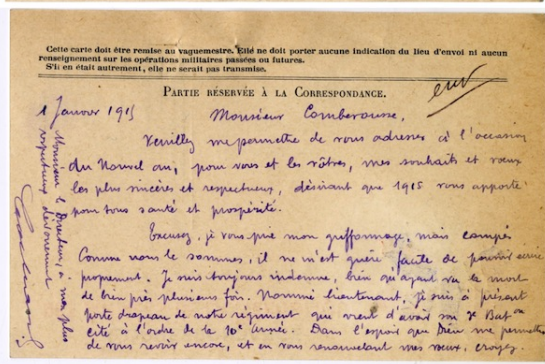 Cette carte doit être remise au vaguemestre. Elle ne doit porter aucune indication du lieu d'envoi ni aucun
renseignement sur les opérations militaires passées ou futures.
S'il en était autrement, elle ne serait pas transmise.
PARTIE RÉSERVÉE À LA CORRESPONDANCE.
1 Janvier 1915
Monsieur Comberousse,
Veuillez me permettre de vous adresser à l'occasion
du Nouvel an, pour vous et les vôtres, mes souhaits et vœux
les plus sincères et respectueux, désirant que 1915 vous apporte
pour tous santé et prospérité.
Excusez, je vous prie mon griffonnage, mais campés
comme nous le sommes, il ne m'est guère facile de pouvoir écrire
proprement. Je suis toujours indemne, bien qu'ayant vu la mort
de bien près plusieurs fois. Nommé lieutenant, je suis à présent
porte drapeau de notre régiment qui vient d'avoir son 3e Baton
cité à l'ordre de la 10e Armée. Dans l'espoir que Dieu me permettra
de vous revoir encore, et en vous renouvelant mes vœux, croyez,
Monsieur le Directeur, à mon plus
respectueux dévouement